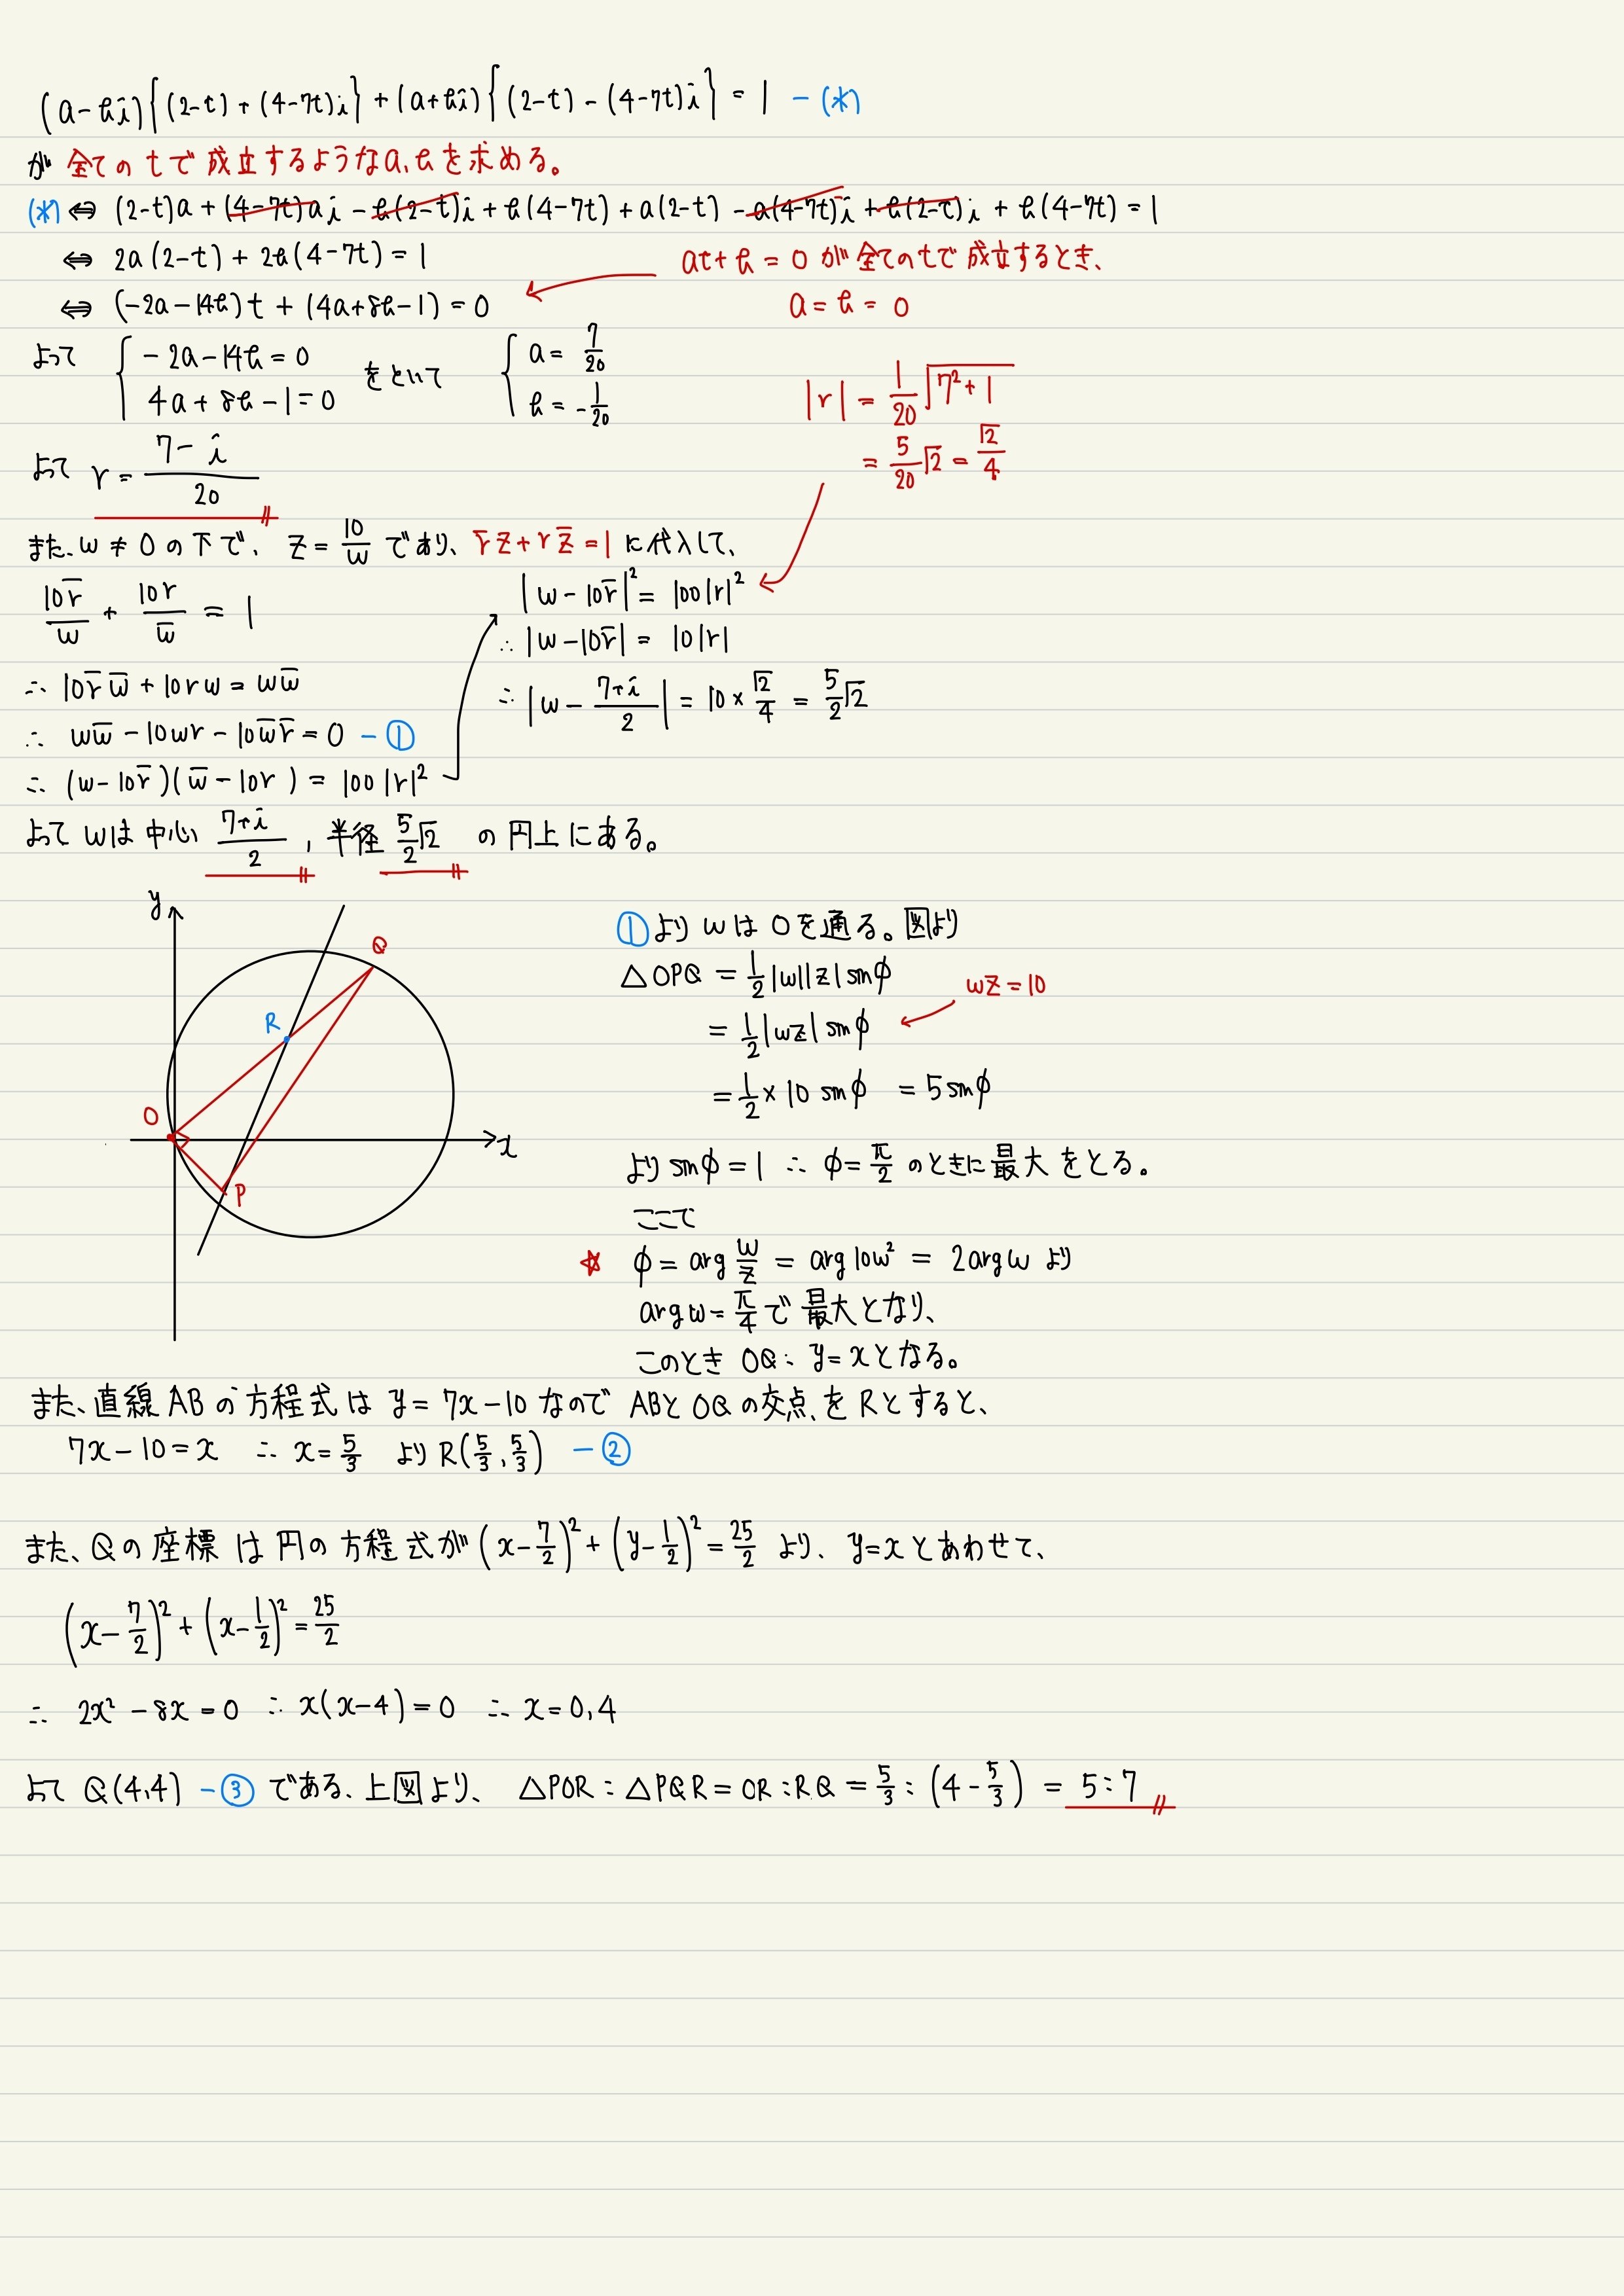 (a-bi){(2-t)+(4-7t)i}+(a+bi){(2-t)-(4-7t)i}=1 -(*)
が 全てのtで成立するようなa,bを求める。
(*)⇔ (2-t)a+(4-7t)ai-b(2-t)i+b(4-7t)+a(2-t)-a(4-7t)i+b(2-t)i+b(4-7t)=1
⇔ 2a(2-t)+2b(4-7t)=1
at+b=0が全てのtで成立するとき、
⇔ (-2a-14b)t+(4a+8b-1)=0
a=b=0
よって { -2a-14b=0 4a+8b-1=0 をといて { a=7/20 b=-1/20
|r|=1/20√(7²+1)
=5/20√2=√2/4
よって r=(7-i)/20
また、w≠0の下で、z=10/w であり、r̄z+rz̄=1に代入して、
10r̄/w+10r/w̄=1
∴ 10r̄w̄+10rw=ww̄
∴ ww̄-10wr-10w̄r̄=0 -①
∴ (w-10r̄)(w̄-10r)=100|r|²
|w-10r̄|²=100|r|²
∴ |w-10r̄|=10|r|
∴ |w-(7+i)/2|=10×√2/4=5/2√2
よってwは中心 (7+i)/2, 半径 5/2√2 の円上にある。
y
Q
R
O
x
P
①より wは0を通る。図より
△OPQ=1/2|w||z|sinφ
wz=10
=1/2|wz|sinφ
=1/2×10sinφ =5sinφ
より sinφ=1 ∴ φ=π/2 のときに最大をとる。
ここで
☆ φ=arg w/z=arg10w²=2argw より
argw=π/4で最大となり、
このとき OQ: y=xとなる。
また、直線ABの方程式は y=7x-10なので ABとOQの交点、をRとすると、
7x-10=x ∴ x=5/3 より R(5/3,5/3) -②
また、Qの座標は円の方程式が(x-7/2)²+(y-1/2)²=25/2 より、y=xとあわせて、
(x-7/2)²+(x-1/2)²=25/2
∴ 2x²-8x=0 ∴ x(x-4)=0 ∴ x=0,4
よって Q(4,4) -③ である、上図より、 △POR:△PQR=OR:RQ=5/3:(4-5/3)=5:7